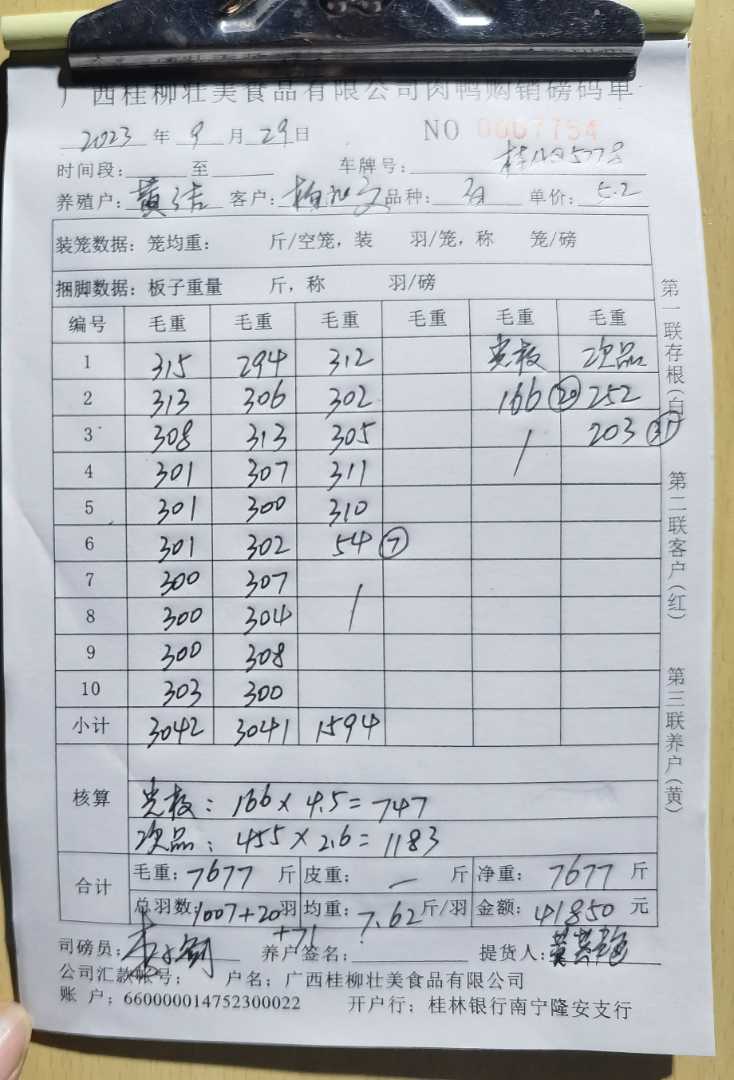 广西桂柳壮美食品有限公司肉鸭购销磅码单
2023 年 9 月 29 日 NO 0007754
时间段: 至 车牌号:
养殖户: 黄 客户: 品种: 单价: 5.2
装笼数据: 笼均重: 斤/空笼, 装 羽/笼, 称 笼/磅
捆脚数据: 板子重量 斤, 称 羽/磅
编号 毛重 毛重 毛重 毛重 毛重 毛重
1 315 294 312 光板 次品
2 313 306 302 166 ⑳ 252
3 308 313 305 / 203
4 301 307 311
5 301 300 310
6 301 302 54 ⑦
7 300 307 /
8 300 304
9 300 308
10 303 300
小计 3042 3041 1594
核算
光板: 166 x 4.5 = 747
次品: 455 x 2.6 = 1183
合计
毛重: 7677 斤 皮重: — 斤 净重: 7677 斤
总羽数: 1007+20 羽 均重: 7.62 斤/羽 金额: 41850 元
+71
司磅员: 养户签名: 提货人:
公司汇款帐号: 户名: 广西桂柳壮美食品有限公司
账 户: 660000014752300022 开户行: 桂林银行南宁隆安支行
第一联存根(白) 第二联客户(红) 第三联养户(黄)